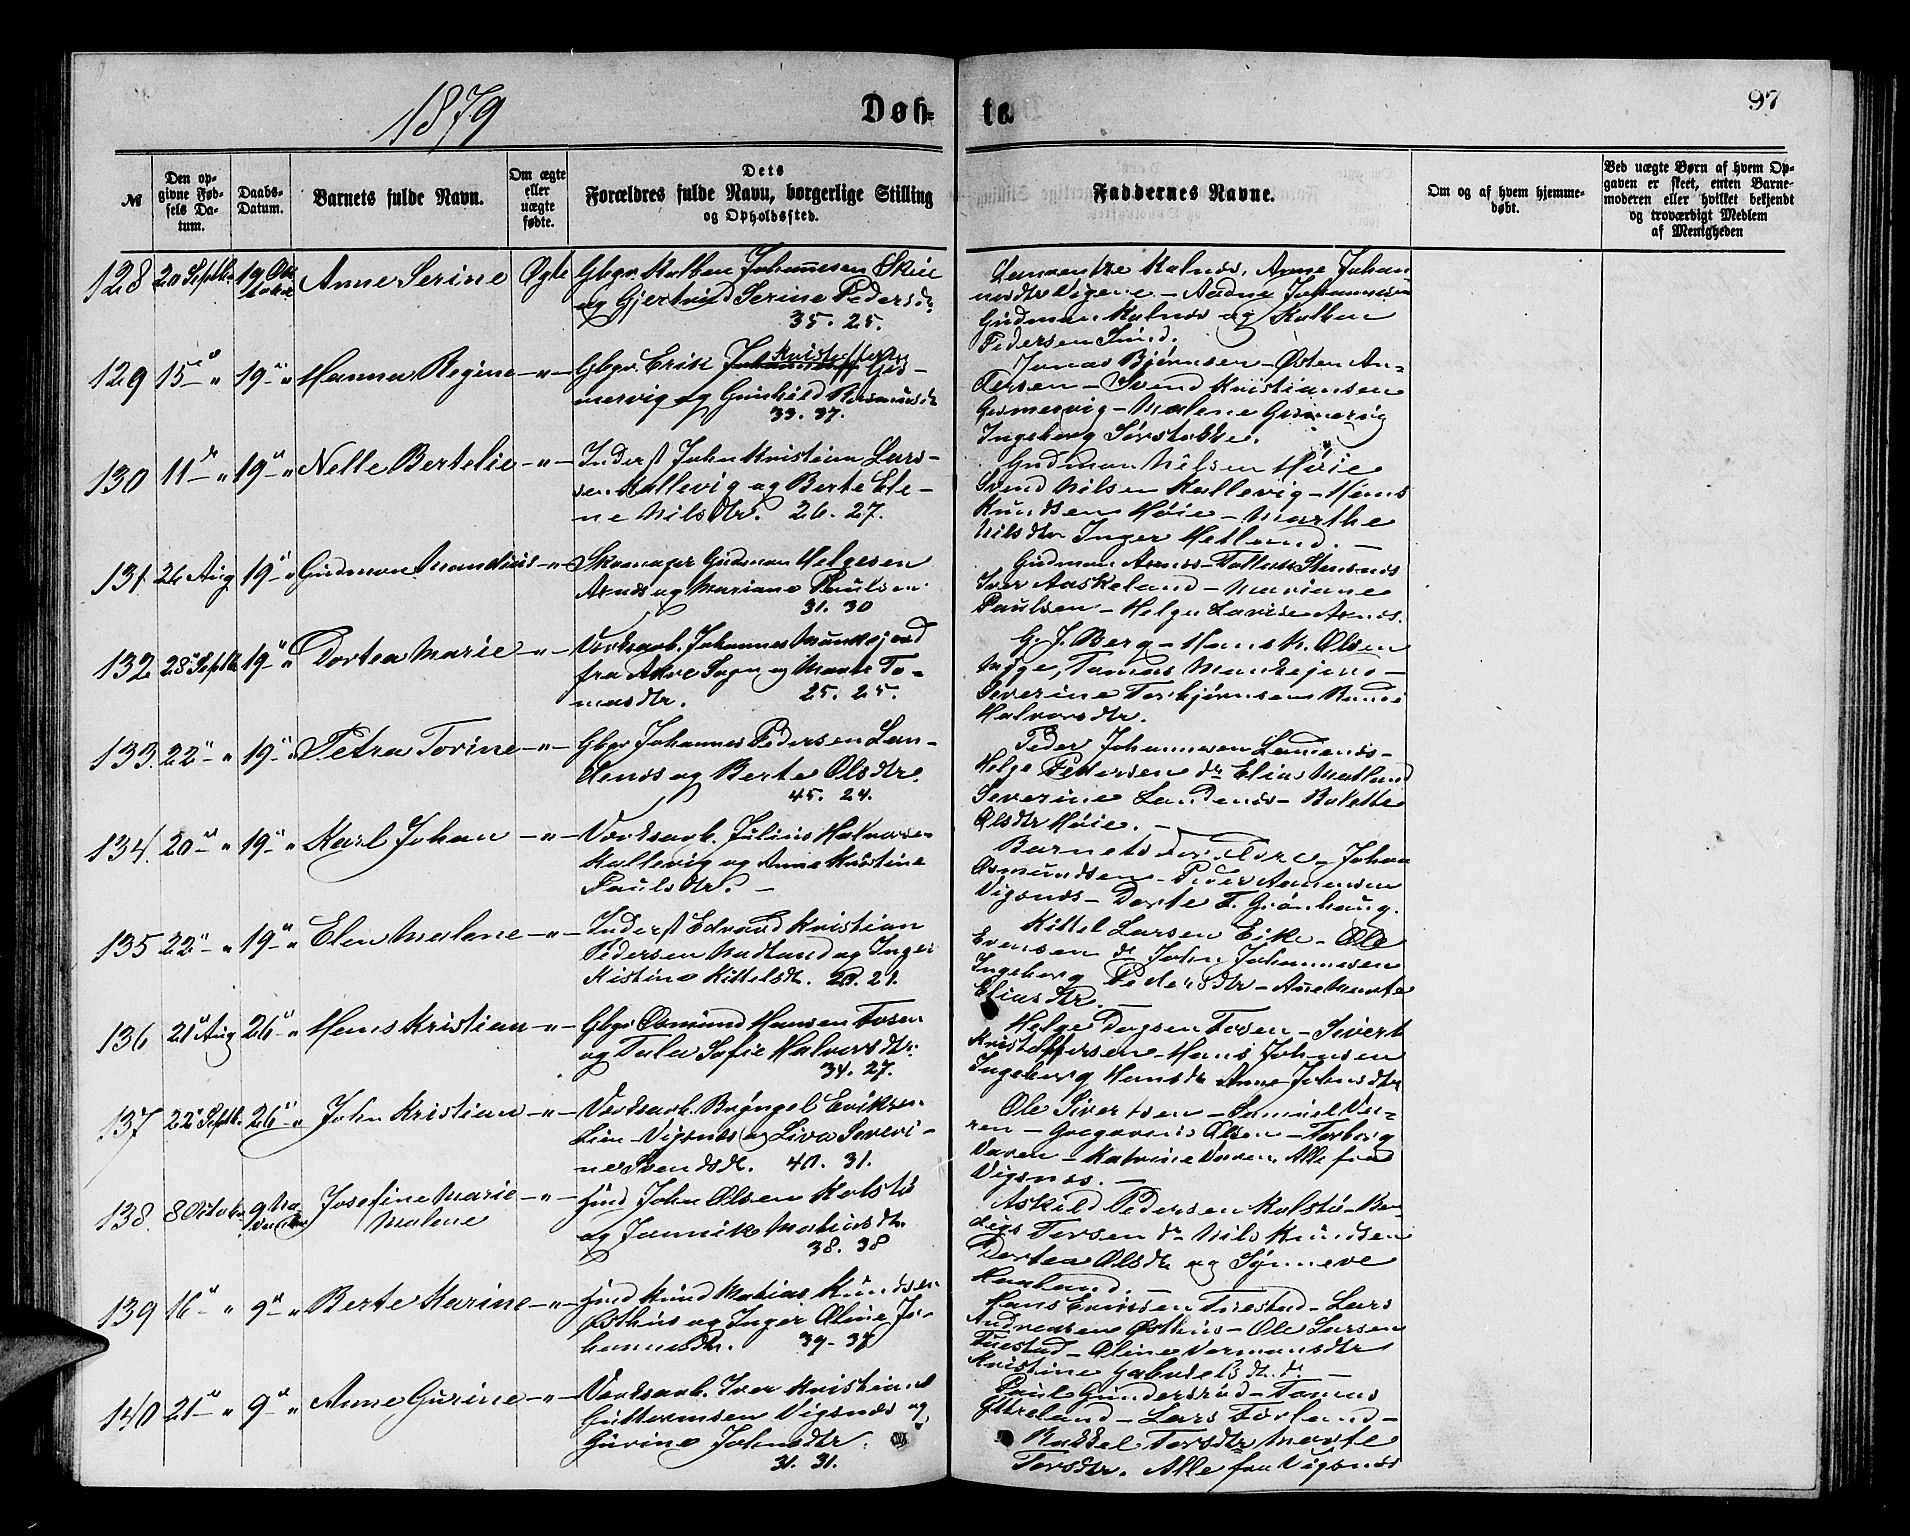 1879
Døb-
te.
97
№
Den op-
givne Fød-
sels Da-
tum.
Daabs-
Datum.
Barnets fulde Navn.
Om ægte
eller
uægte
fødte.
Dets
Forældres fulde Navn, borgerlige Stilling
og Opholdssted.
Faddernes Navne.
Om og af hvem hjemme-
døbt.
Ved uægte Børn af hvem Op-
gaven er skeet, enten Barne-
moderen eller hvilket bekjendt
og troværdigt Medlem
af Menigheden
128 20 Septbr 19 Oktober Anne Serine Ægte
Gbgr. Kolben Johannesen Skeie
og Gjertrud Serine Pedersdr
35. 25.
Kalnes, Anne Johan-
nesdtr Vigene - Aadne Johannesen
Gudman Kalnes og Kolben
Pedersen Sund.
129 15 " " 19 " " Hanna Regine - " -
Gbgr. Erik Kristoffersen Gis-
mervig og Gunhild Rasmusdr
33. 37.
Jonas Bjørnsen - Østen An-
dersen - Svend Kristiansen
Gismervig - Malene Gismervig
Ingeborg Sørstokke.
130 11 " " 19 " " Nelle Bertelie - " -
Inderst John Kristian Lars-
sen Kallevig og Berte Ele-
ne Nilsdtr. 26. 27.
Gudman Nilsen Høie
Svend Nilsen Kallevig - Hans
Knudsen Høie - Marthe
Nilsdtr Inger Hetland. -
131 26 Aug 19 " " Gudman Mandius - " -
Skomager Gudman Helgesen
Arnes og Mariane Paulsen
31. 30
Gudman Arnes - Tollak Stensnes
Iver Aaskeland - Mariane
Paulsen - Helga Lavise Arnes.
132 28 Septbr 19 " " Dortea Marie - " -
Værksarb. Johannes
fra Akre Sogn og Marte To-
masdtr. 25. 25.
G. J. Berg - Hans K. Olsen
Nyge, Tomas
Severine Torbjørnsen
Halvorsdtr.
133. 22 " " 19 " " Petra Torine - " -
Gbgr Johannes Pedersen Lan-
denes og Berte Olsdtr.
45. 24.
Peder Johannesen Landenes -
Helge Pedersen do Elias Matland
Severine Landenes - Bolette
Olsdtr Høie. -
134. 20 " " 19 " " Karl Johan - " -
Værksarb. Julius Halvorsen
Kallevig og Anne Kristine
Paulsdtr. -
Barnets Forældre - Johan
Osmundsen - Peder Aanensen
Vigsnes - Dorte T. Grønhaug.
135 22 " " 19 " " Elen Malene - " -
Inderst Edvard Kristian
Pedersen Matland og Inger
Kistine Kittelsdtr. 20. 21.
Kittel Larsen Eike - Ole
Evensen do John Johannesen
Ingeborg Pedersdtr - Ane Marte
Eliasdtr. -
136 21 Aug 26 " " Hans Kristian - " -
Gbgr Osmund Hansen Fosen
og Tala Sofie Halvorsdtr.
34. 27.
Helge Dagsen Fosen - Sivert
Kristoffersen - Hans Johnsen
Ingeborg Hansdr Anne Johnsdtr
137 22 Septbr. 26 " " John Kristian - " -
Værksarb. Bryngel Eriksen
Lien - Vigsnes og Liva Severi-
ne Svendsdtr. 40. 31.
Ole Sivertsen - Samuel Va-
ren - Gregorius Olsen - Torborg
Varen - Katrine Varen, Alle fra
Vigsnes. -
138. 8 Oktober 9 November Josefine Marie
Malene - " -
Hmd John Olsen Kolstø
og Jannike Matiasdtr.
38. 38
Askild Pedersen Kolstø -
Torsen do Nils Knudsen
Dortea Olsdtr og Synneve
Haaland. -
139 16 " " 9 " " Berte Karine - " -
Hmd Knud Matias Knudsen
Østhus og Inger Oline Jo-
hannesdtr. 39. 37
Hans Eriksen Tuestad - Lars
Andreasen Østhus - Ole Larsen
Tuestad - Oline Normansdtr
Kristine Gabrielsdtr. do. -
140 21 " " 9 " " Anne Gurine - " -
Værksarb. Iver Kristian
Guttormsen Vigsnes og
Gurine Johnsdtr.
31. 31.
Paul Gundersrud - Tomas
Ytreland - Lars Førland -
Rakkel Torsdtr Marte
Torsdtr. Alle fra Vigsnes